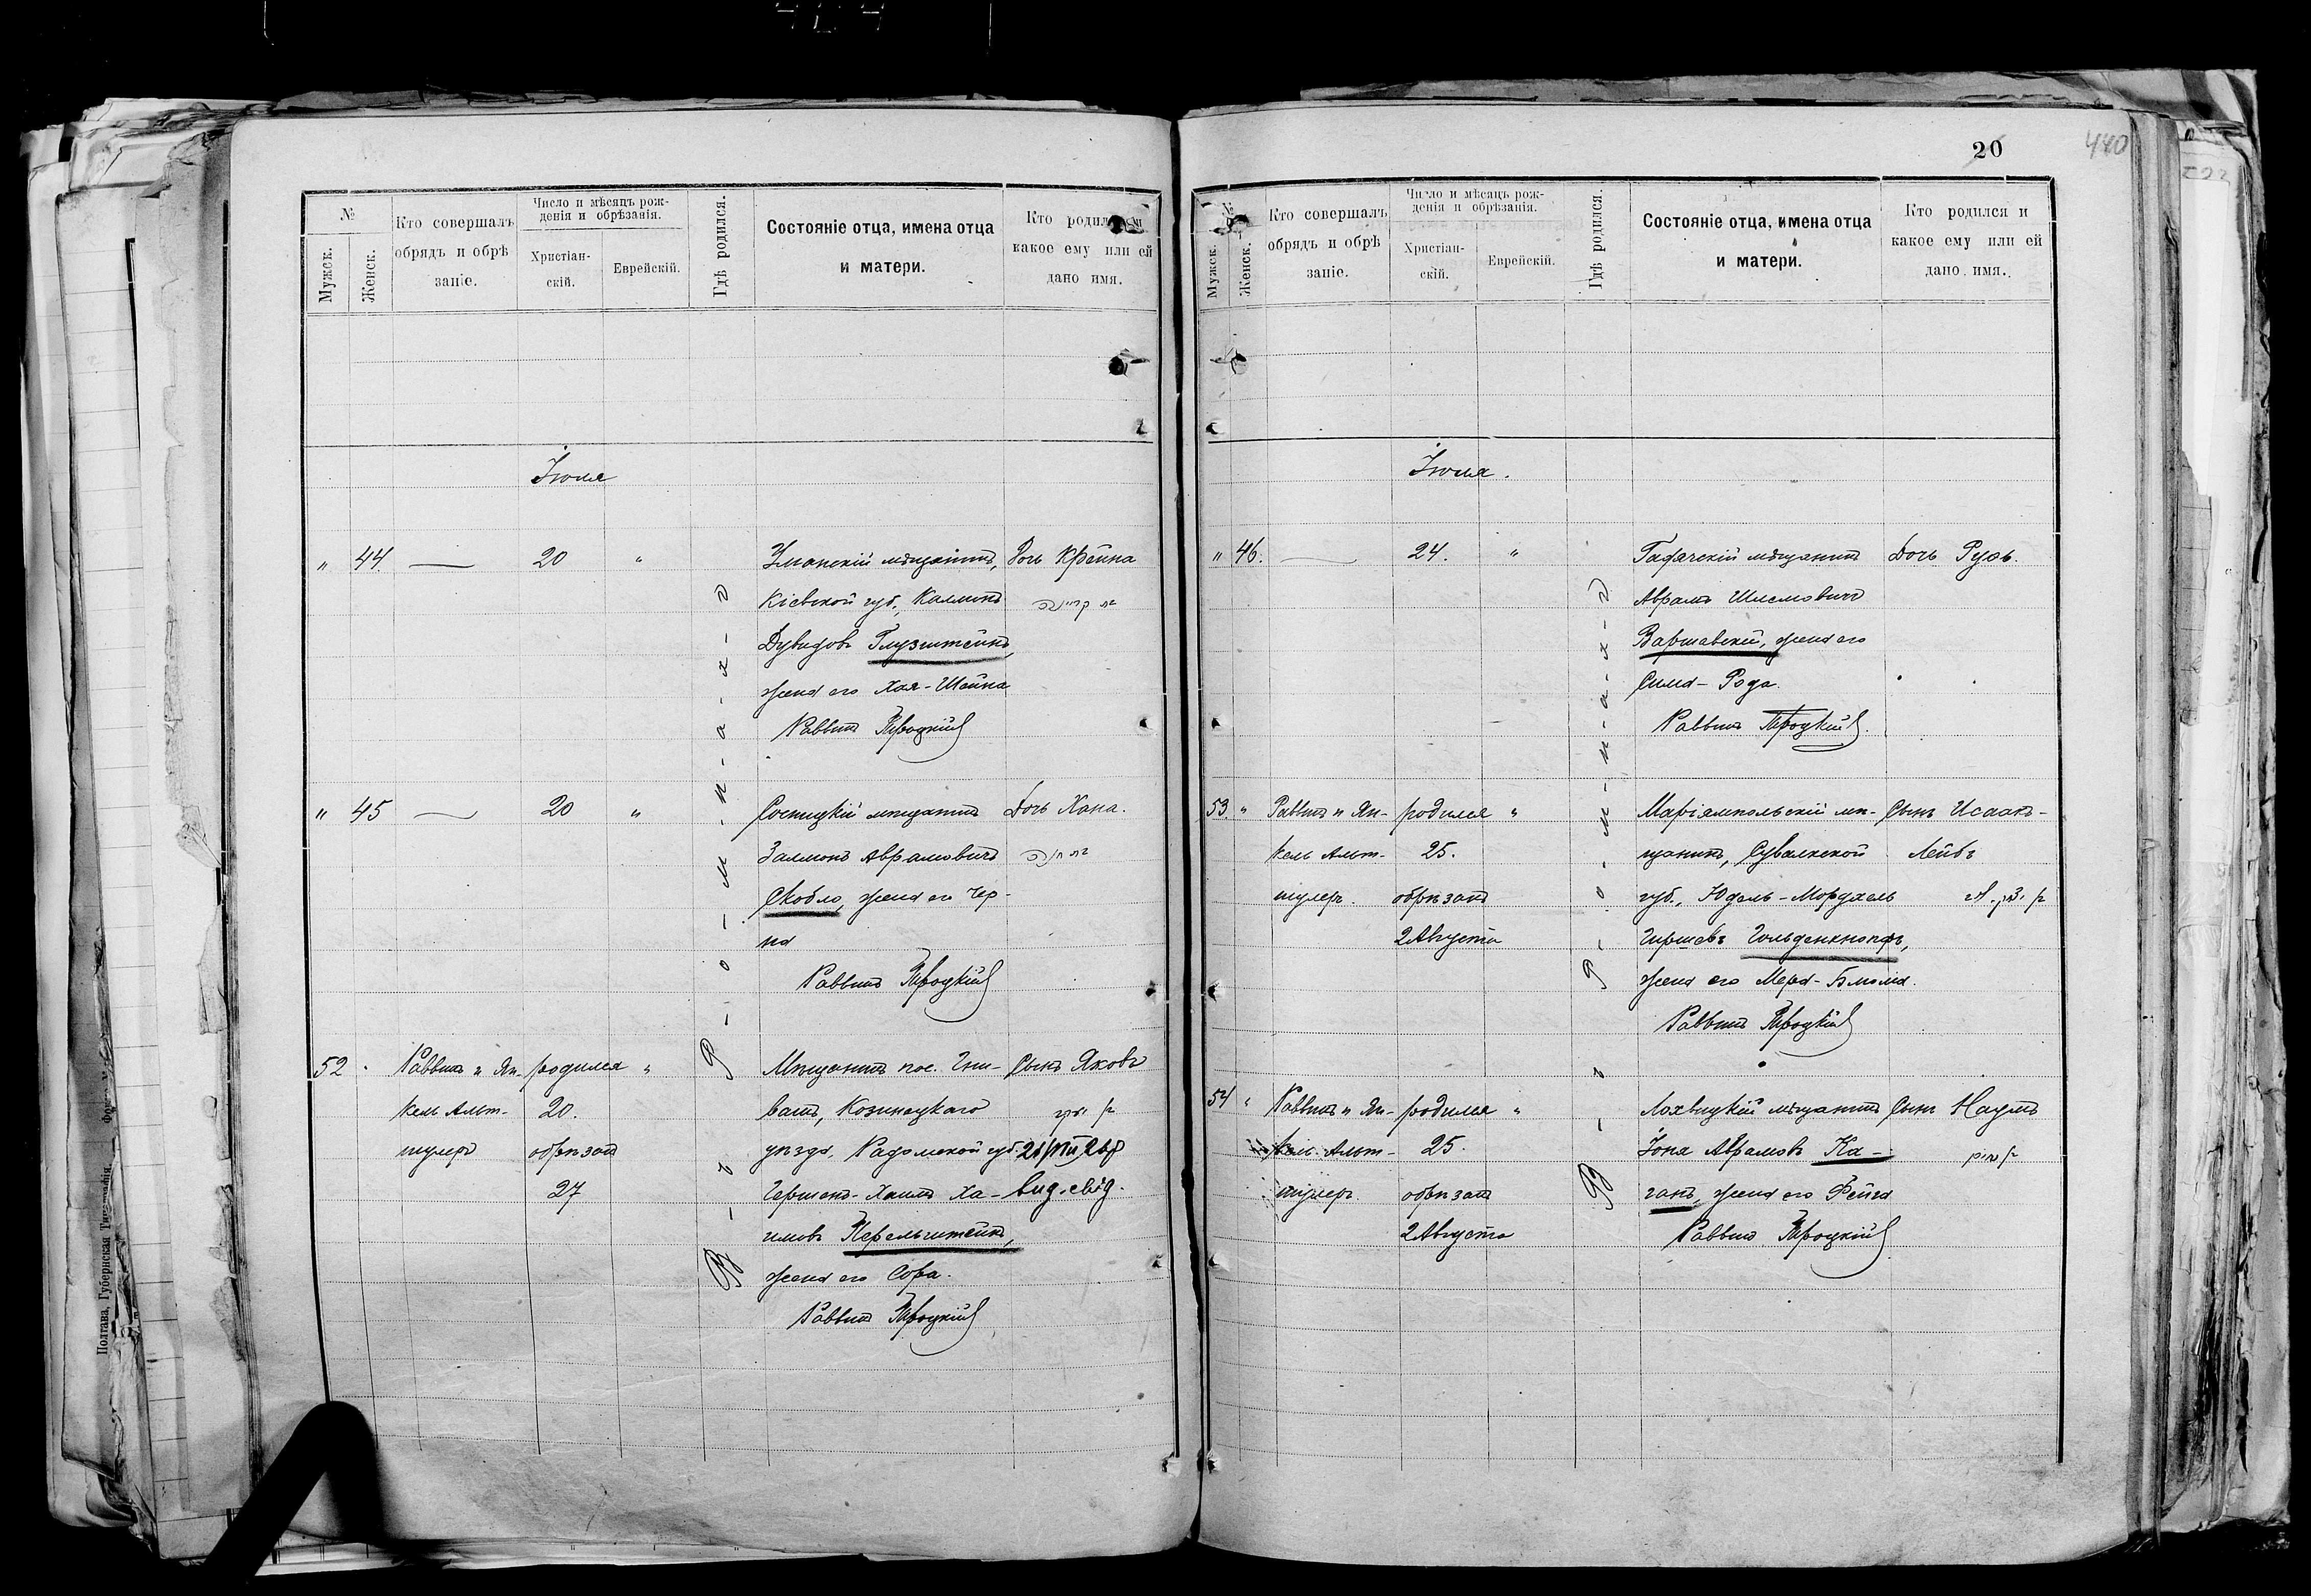 20
440
№
Мужск.
Женск.
Кто совершалъ
обрядъ и обрѣ
заніе.
Число и мѣсяцъ рож-
денія и обрѣзанія.
Христіан-
скій.
Еврейскій.
Гдѣ родился.
Состояніе отца, имена отца
и матери.
Кто
какое ему или ей
дано имя.
Іюля
" 44 — 20 "
Уманскій мѣщанинъ,
Кіевской губ. Калманъ
Дувидовъ Глузштейнъ,
жена его Хая-Шейна
Раввинъ Троцкій
Дочь Крейна
" 45 — 20 "
мѣщанинъ
Залманъ Аврамовичъ
Скобло, жена его Чер-
на
Раввинъ Троцкій
Дочь Хана.
52 "
Раввинъ и Ян-
кель Альт-
шулеръ
родился "
20.
обрѣзанъ
27
Мѣщанинъ пос. Гни-
вашъ, Козинецкаго
уѣзда, Радомской губ.
Гершонъ-Хаимъ Ха-
имовъ Перельштейнъ,
жена его Сора.
Раввинъ Троцкій
Сынъ Яковъ
יעקב
Въ Ромнахъ
№
Мужск.
Женск.
Кто совершалъ
обрядъ и обрѣ
заніе.
Число и мѣсяцъ рож-
денія и обрѣзанія.
Христіан-
скій.
Еврейскій.
Гдѣ родился.
Состояніе отца, имена отца
и матери.
Кто родился и
какое ему или ей
дано имя.
Іюля.
" 46. — 24. "
Гадячскій мѣщанинъ
Аврамъ Шлемовичъ
Варшавскій, жена его
Сима-Рода.
Раввинъ Троцкій
Дочь Руфь.
53. "
Раввинъ и Ян-
кель Альт-
шулеръ.
родился "
25.
обрѣзанъ
2 Августа
Маріямпольскій мѣ-
щанинъ, Сувалкской
губ., Юдель-Мордхель
Гиршевъ Гольденкнопфъ,
жена его Мера-Блюма.
Раввинъ Троцкій
Сынъ Исаакъ-
Лейбъ
54 "
Раввинъ и Ян-
кель Альт-
шулеръ
родился "
25.
обрѣзанъ
2 Августа
Лохвицкій мѣщанинъ
Іона Аврамовъ Ка-
ганъ, жена его Фейга
Раввинъ Троцкій
Сынъ Наумъ
Въ Ромнахъ
Полтава, Губернская Типографія.